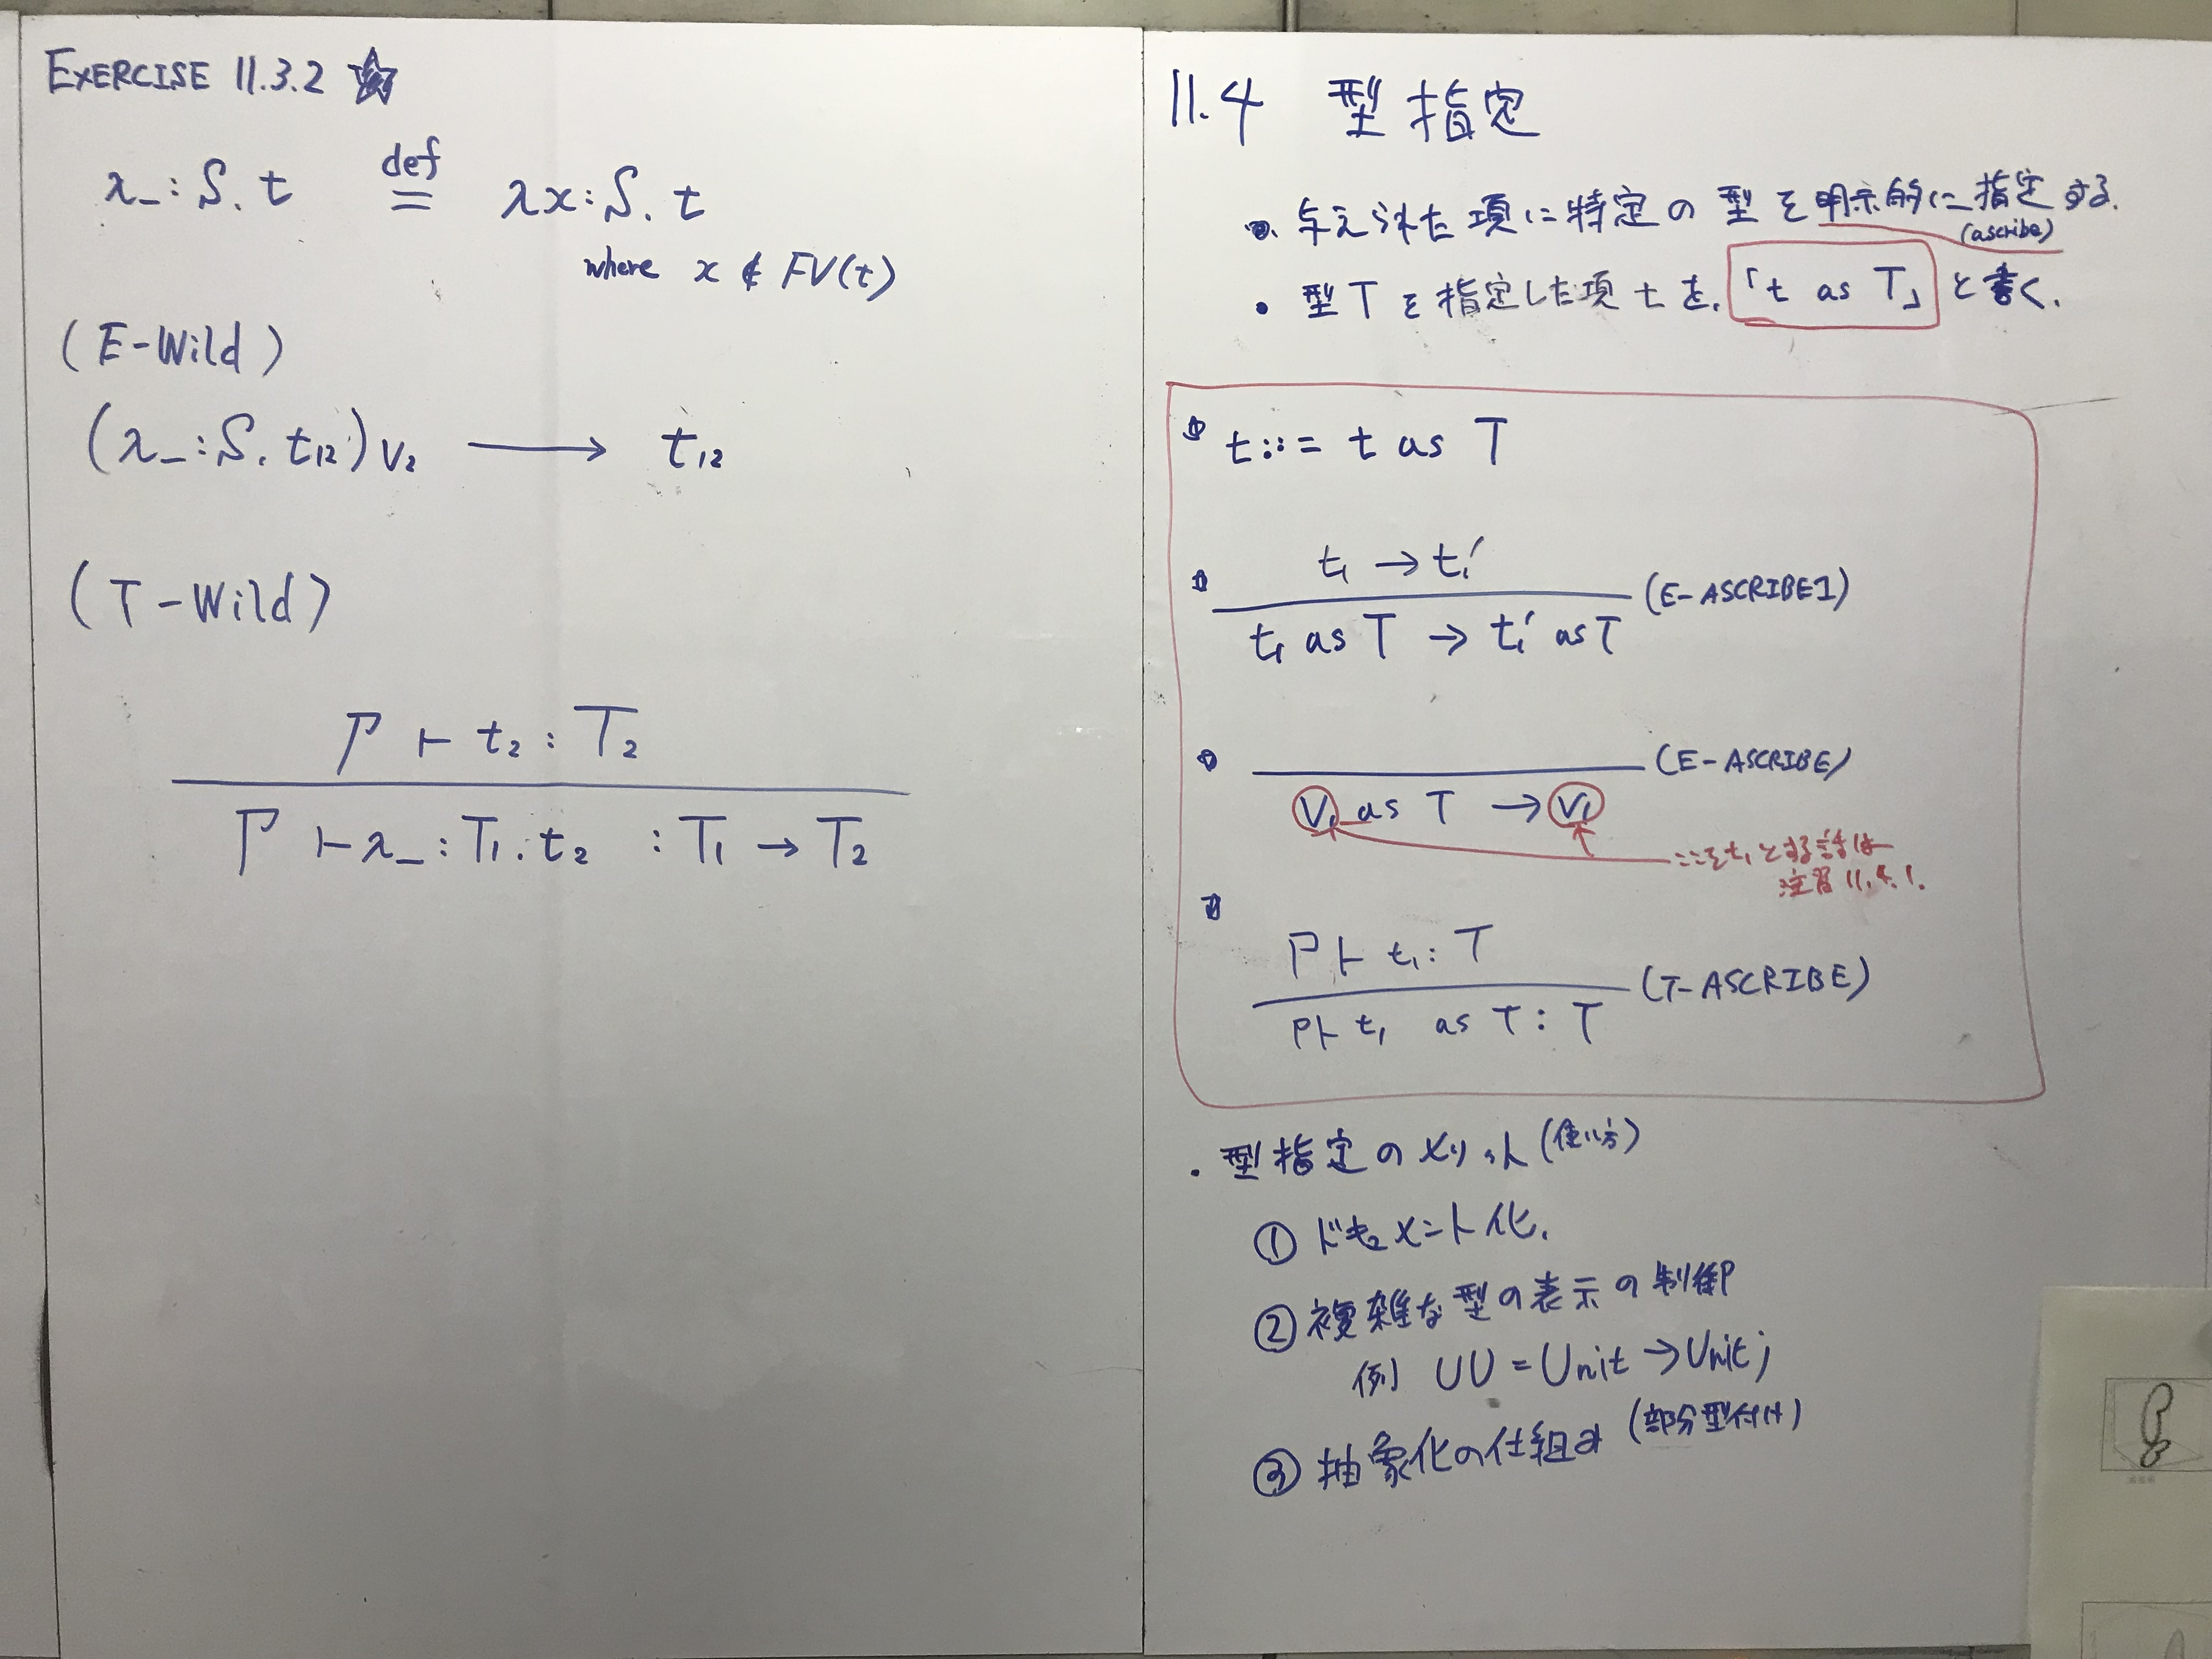 EXERCISE 11.3.2 ★
λ_:S. t def= λx:S. t
where x ∉ FV(t)
(E-Wild)
(λ_:S. t₁₂) v₂ ⟶ t₁₂
(T-Wild)
Γ ⊢ t₂ : T₂
Γ ⊢ λ_:T₁. t₂ : T₁ → T₂
11.4 型指定
• 与えられた項に特定の型を明示的に指定する.
(ascribe)
• 型Tを指定した項tを,「t as T」と書く.
t ::= t as T
t₁ → t₁′
(E-ASCRIBE1)
t₁ as T → t₁′ as T
(E-ASCRIBE)
v₁ as T → v₁
ここをt₁とする話は
演習 11.4.1.
Γ ⊢ t₁ : T
(T-ASCRIBE)
Γ ⊢ t₁ as T : T
・型指定のメリット(使い方)
① ドキュメント化.
② 複雑な型の表示の制御
例 UU = Unit → Unit;
③ 抽象化の仕組み (部分型付け)